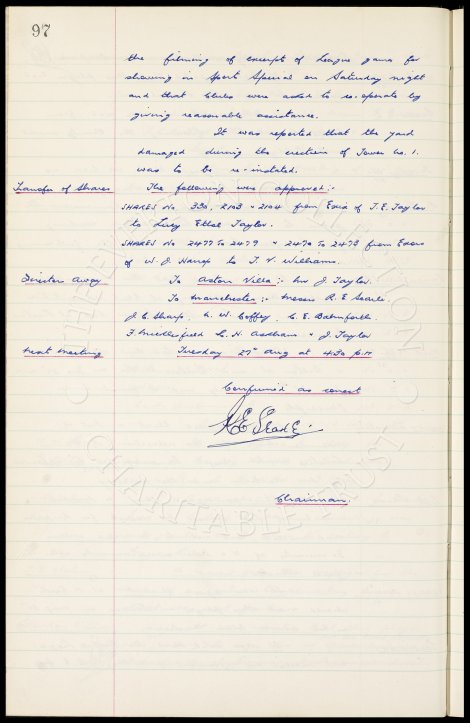 97
the filming of excerpts of League games for
showing in Sport Special on Saturday night
and that Clubs were asked to co-operate by
giving reasonable assistance.
It was reported that the yard
damaged during the erection of Tower No. 1.
was to be re-instated.
Transfer of Shares The following were approved:-
SHARES No. 330, 2103 & 2104 from Exix of T. E. Taylor
to Lucy Ethel Taylor.
SHARES No 2477 To 2479 & 2470 To 2473 from Exors
of W. J. to T. V. Williams.
Director Away To Aston Villa:- Mr J. Taylor.
To Manchester:- Messrs R. E. Searle.
J. C. Sharp. C. W. Coffey. C. E. Balmforth
F. Micklesfield C. H. Askham & J. Taylor
Next Meeting Tuesday 27" Aug at 4.30 P.M
Confirmed as correct
R E Searle
Chairman.
THE EVERTON COLLECTION
CHARITABLE TRUST